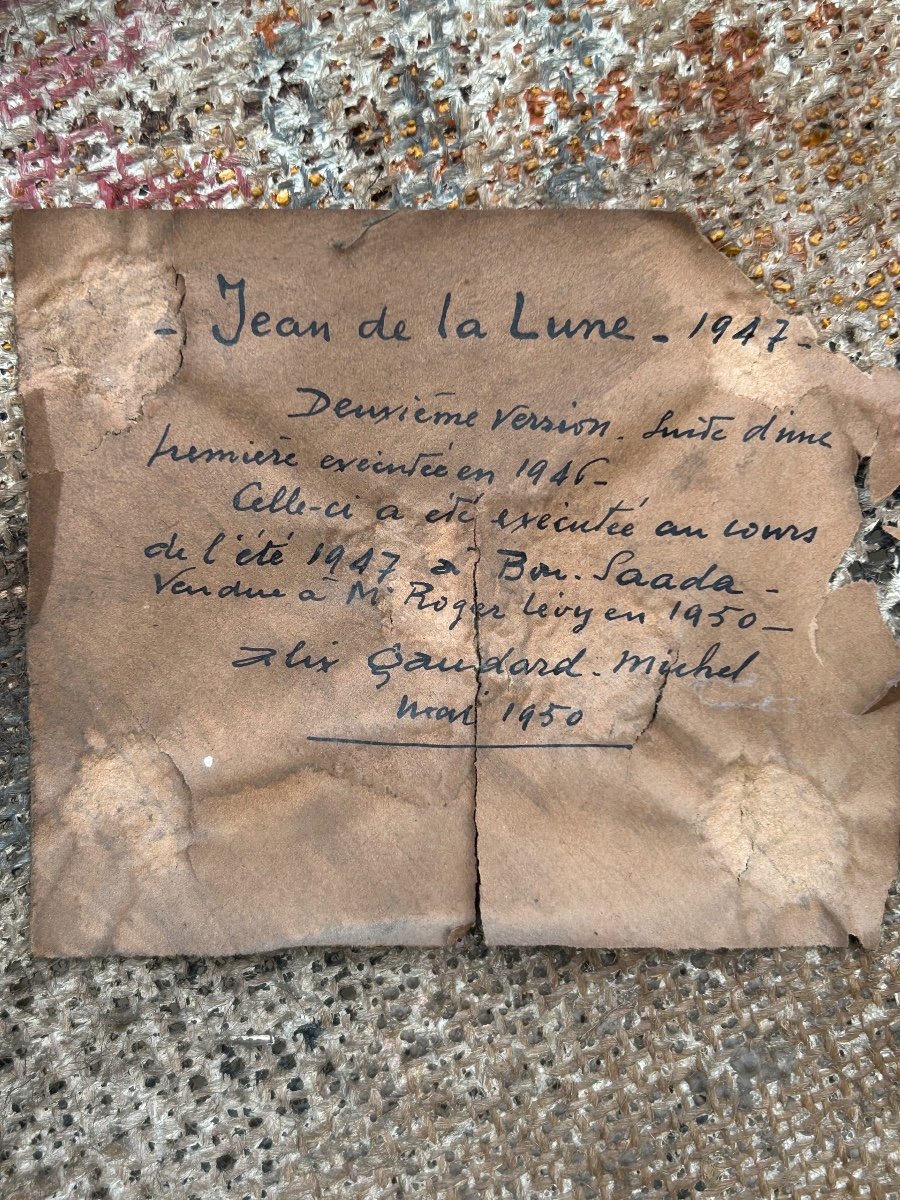 - Jean de la Lune - 1947 -
Deuxième version. Suite d'une
première executée en 1946 -
Celle-ci a été executée au cours
de l'été 1947 à Bou. Saada -
Vendue à Mr Roger Lévy en 1950 -
Alix Gaudard. Michel
mai 1950